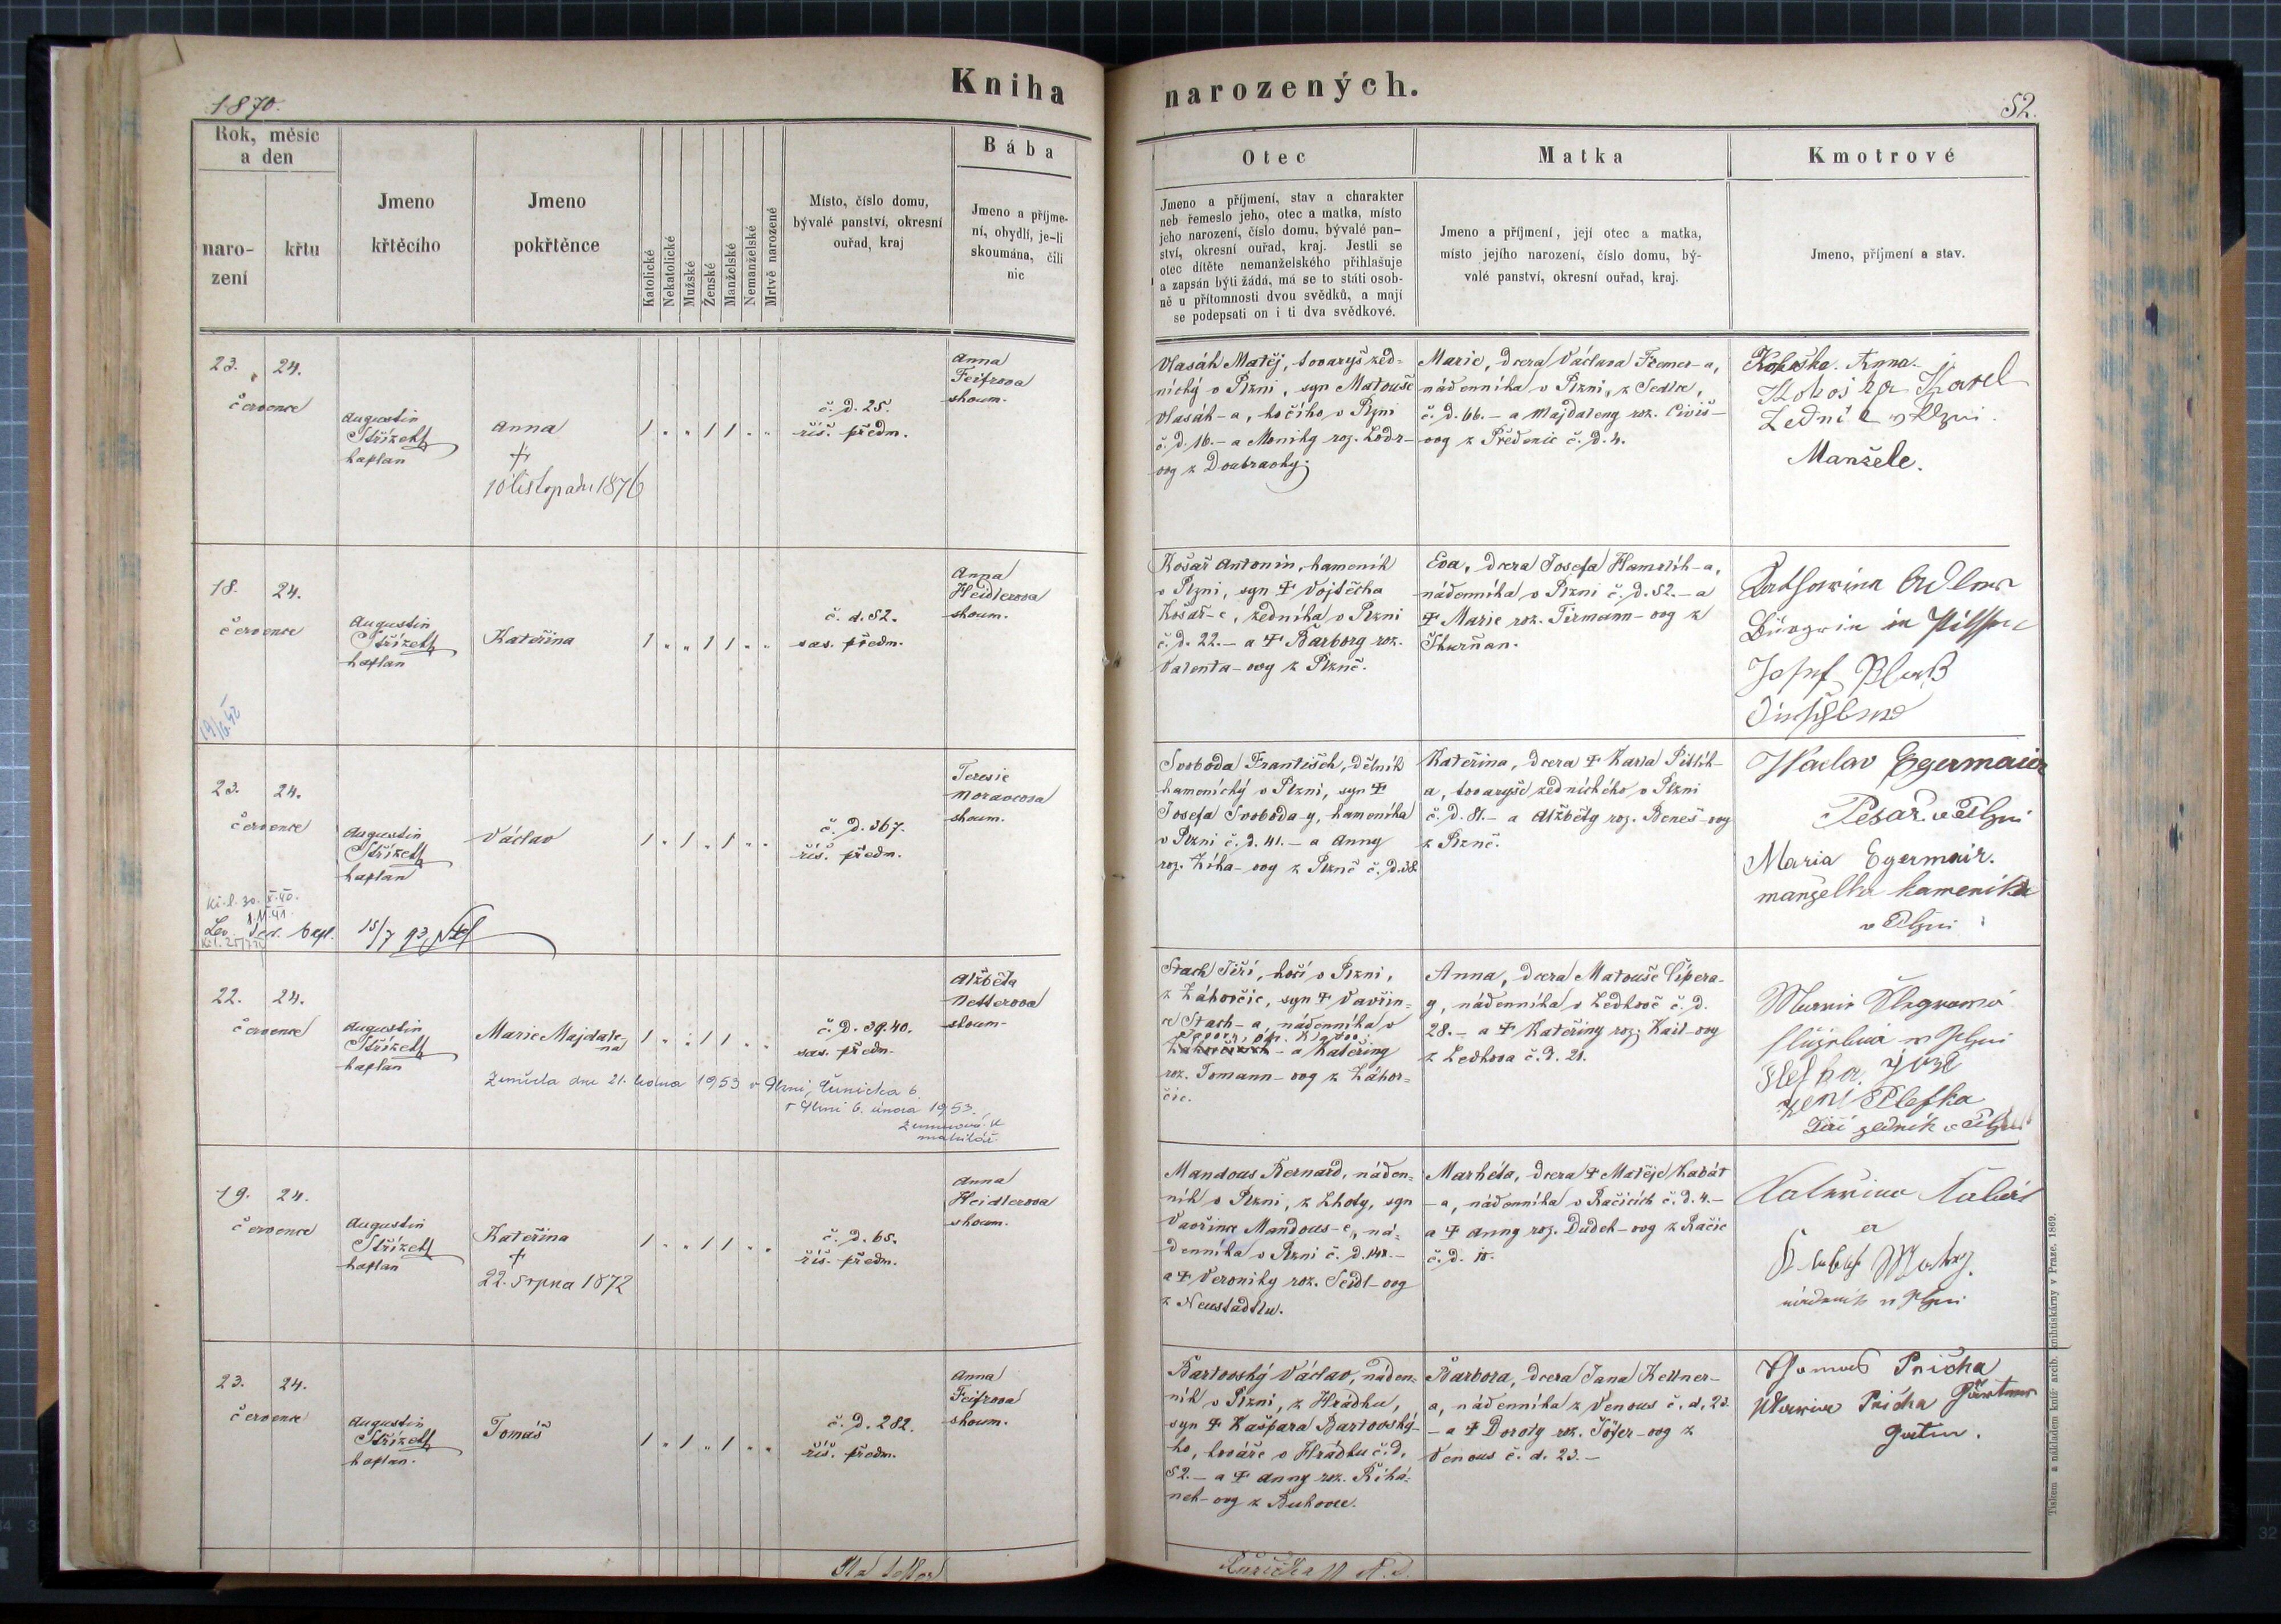 Kniha
narozených.
1870.
52.
Rok, měsíc
a den
naro-
zení
křtu
Jmeno
křtěcího
Jmeno
pokřtěnce
Katolické
Nekatolické
Mužské
Ženské
Manželské
Nemanželské
Mrtvě narozené
Místo, číslo domu,
bývalé panství, okresní
ouřad, kraj
Bába
Jmeno a příjme-
ní, obydlí, je-li
skoumána, čili
nic
Otec
Jmeno a příjmení, stav a charakter
neb řemeslo jeho, otec a matka, místo
jeho narození, číslo domu, bývalé pan-
ství, okresní ouřad, kraj. Jestli se
otec dítěte nemanželského přihlašuje
a zapsán býti žádá, má se to státi osob-
ně u přítomnosti dvou svědků, a mají
se podepsati on i ti dva svědkové.
Matka
Jmeno a příjmení, její otec a matka,
místo jejího narození, číslo domu, bý-
valé panství, okresní ouřad, kraj.
Kmotrové
Jmeno, příjmení a stav.
23. 24.
července
Augustin
Střízek
kaplan
Anna
†
10 listopadu 1876
1 " " 1 1 " "
č. d. 25.
říš. předm.
Anna
Feifrova
skoum.
Vlasák Matěj, tovaryš zed-
nický v Plzni, syn Matouše
Vlasák-a, kočího v Plzni
č. d. 16. - a Moniky roz.
ovy z Doubravky.
Marie, dcera Václava
nádenníka v Plzni, z Sedlce,
č. d. 66. - a Majdaleny roz. Civiš-
ovy z Předenic č. d. 4.
Kokoška Anna.
Kokoška Karel
Zedník v Plzni.
Manžele.
18. 24.
července
Augustin
Střízek
kaplan
Kateřina
1 " " 1 1 " "
č. d. 52.
sas. předm.
Anna
Heidlerova
skoum.
Košař Antonín, kameník
v Plzni, syn † Vojtěcha
Košař-e, zedníka v Plzni
č. d. 22. - a † Barbory roz.
Valenta-ovy z Plzně.
Eva, dcera Josefa
nádenníka v Plzni č. d. 52. - a
† Marie roz. Tirmann-ovy z
Štkuřňan.
Adler
Bürgerin in Pilsen
Josef
23. 24.
července
Augustin
Střízek
kaplan
Václav
1 " 1 " 1 " "
č. d. 367.
říš. předm.
Teresie
Moravcova
skoum.
15/7 93
Svoboda František, dělník
kamenický v Plzni, syn †
Josefa Svoboda-y, kameníka
v Plzni č. d. 41. - a Anny
roz. Zíka-ovy z Plzně č. d. 38.
Kateřina, dcera † Karla
a, tovaryše zednického v Plzni
č. d. 81. - a Alžběty roz. Beneš-ovy
z Plzně.
Waclav Egermaier
Pekař v Plzni
Maria Egermair.
manželka kameníka
v Plzni
22. 24.
července
Augustin
Střízek
kaplan
Marie Majdale-
na
1 " " 1 1 " "
č. d. 39.40.
sas. předm.
Alžběta
Netterova
skoum.
Zemřela dne 21. ledna 1953 v Plzni,
v Plzni 6. února 1953.
matrikář
Stach Jiří, kočí v Plzni,
z Záhorčic, syn † Vavřin-
ce Stach-a, nádenníka v
a Kateřiny
roz. Tomann-ovy z Záhor-
čic.
Anna, dcera Matouše Čípera-
y, nádenníka v Ledkově č. d.
28. - a † Kateřiny roz. Kail-ovy
z Ledkova č. d. 21.
v Plzni
Pleska
Jiří zedník v Plzni
19. 24.
července
Augustin
Střízek
kaplan
Kateřina
†
22. srpna 1872
1 " " 1 1 " "
č. d. 65.
říš. předm.
Anna
Heidlerova
skoum.
Mandous Bernard, náden-
ník v Plzni, z Lhoty, syn
Vavřince Mandous-e, ná-
denníka v Plzni č. d. 148. -
a † Veroniky roz. Seidl-ovy
z Neustadtlu.
Markéta, dcera † Matěje Kabát
-a, nádenníka v Račicích č. d. 4. -
a † Anny roz. Dudek-ovy z Račic
č. d. 10.
nádenník v Plzni
23. 24.
července
Augustin
Střízek
kaplan.
Tomáš
1 " 1 " 1 " "
č. d. 282.
říš. předm.
Anna
Feifrova
skoum.
Bartovský Václav, náden-
ník v Plzni, z Hrádku,
syn † Kašpara Bartovský-
ho, kováře v Hrádku č. d.
52. - a † Anny roz. Řihá-
nek-ovy z Bukovce.
Barbora, dcera Jana Kellner-
a, nádenníka z Venous č. d. 23.
- a † Doroty roz. Töfer-ovy z
Venous č. d. 23. -
Thomas Pricha
Pricha Gärtner
Gattin.
Tiskem a nákladem kníž. arcib. knihtiskárny v Praze. 1869.